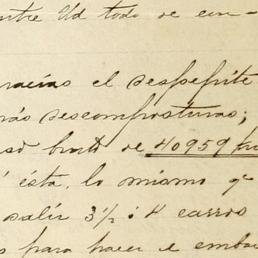 ntre Ud todo se con-
racias el despepite
rás descomposturas;
so bruto de 40959
ésta, lo mismo q
salir 3½ ó 4 carros
s para hacer el embar